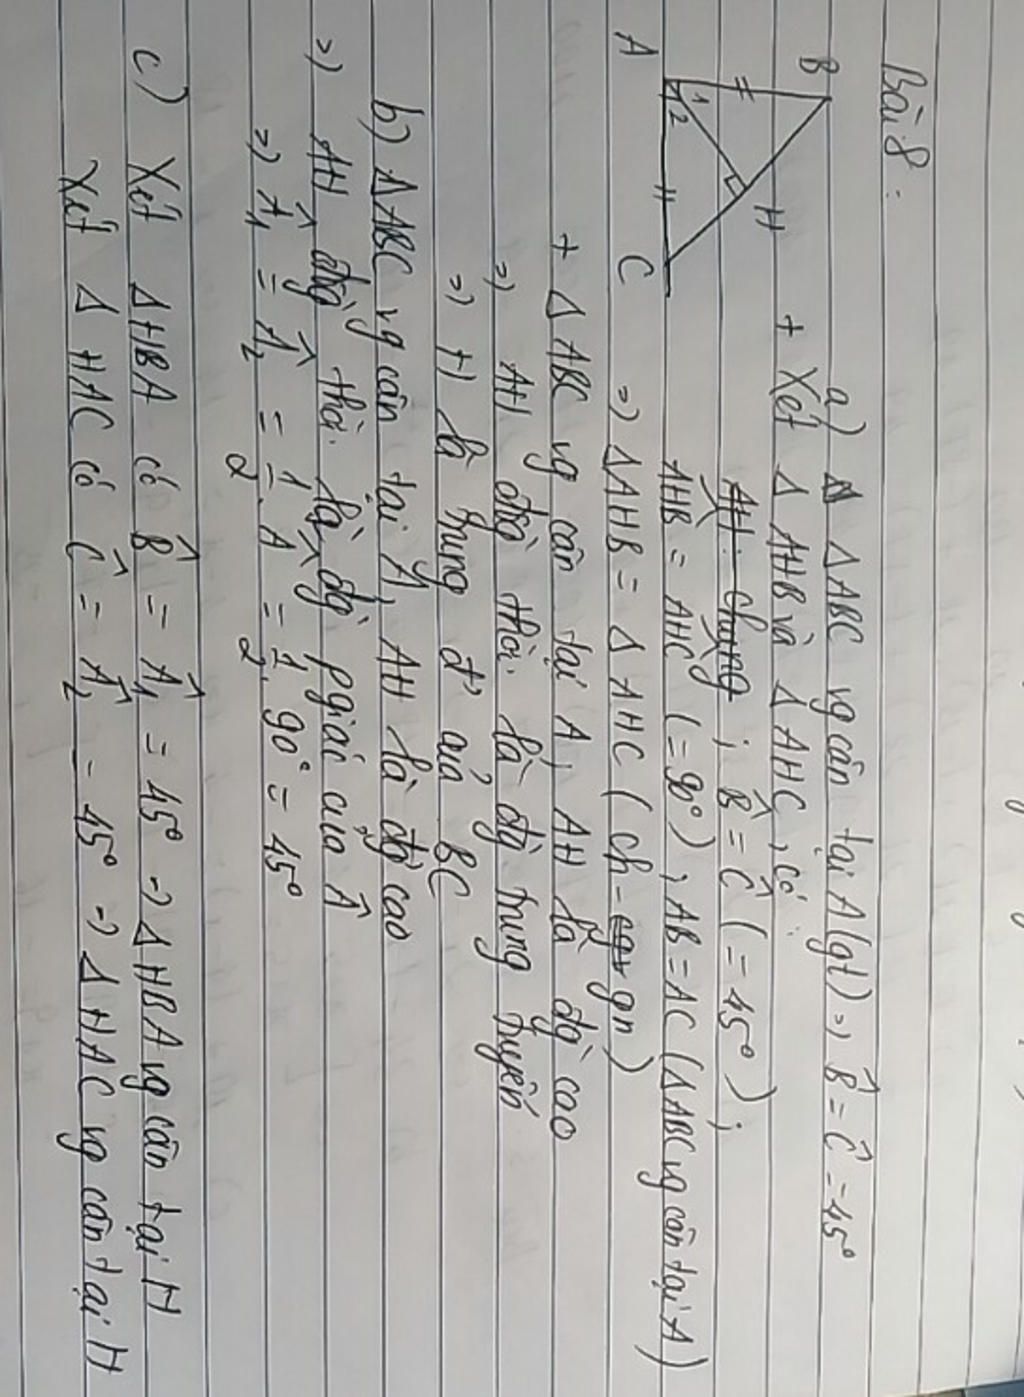 Bài 8:
B
H
A
1
2
C
a) Δ ABC vg cân tại A (gt) => B̂ = Ĉ = 45°
+ Xét Δ AHB và Δ AHC, có:
AH: chung ; B̂ = Ĉ (= 45°) ;
AĤB = AĤC (= 90°) ; AB = AC (Δ ABC vg cân tại A)
=> Δ AHB = Δ AHC (ch - gn)
+ Δ ABC vg cân tại A, AH là đg cao
=> AH đồg thời là đg trung tuyến
=> H là trung đ' của BC
b) Δ ABC vg cân tại A, AH là đg cao
=> AH đồg thời là đg pgiác của Â
=> Â₁ = Â₂ = 1/2 . Â = 1/2 . 90° = 45°
c) Xét Δ HBA có B̂ = Â₁ = 45° -> Δ HBA vg cân tại H
Xét Δ HAC có Ĉ = Â₂ = 45° -> Δ HAC vg cân tại H